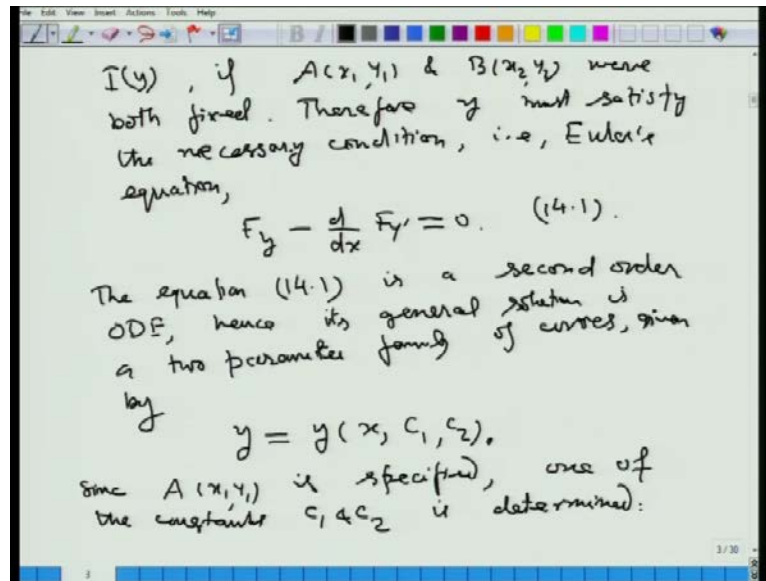 File Edit View Insert Actions Tools Help
I(y), if A(x₁, y₁) & B(x₂, y₂) were
both fixed. Therefore y must satisfy
the necessary condition, i.e, Euler's
equation,
F_y - d/dx F_y' = 0. (14.1).
The equation (14.1) is a second order
ODE, hence its general solution is
a two parameter family of curves, given
by
y = y(x, C₁, C₂).
Since A(x₁, y₁) is specified, one of
the constants C₁ & C₂ is determined.
3/30
3